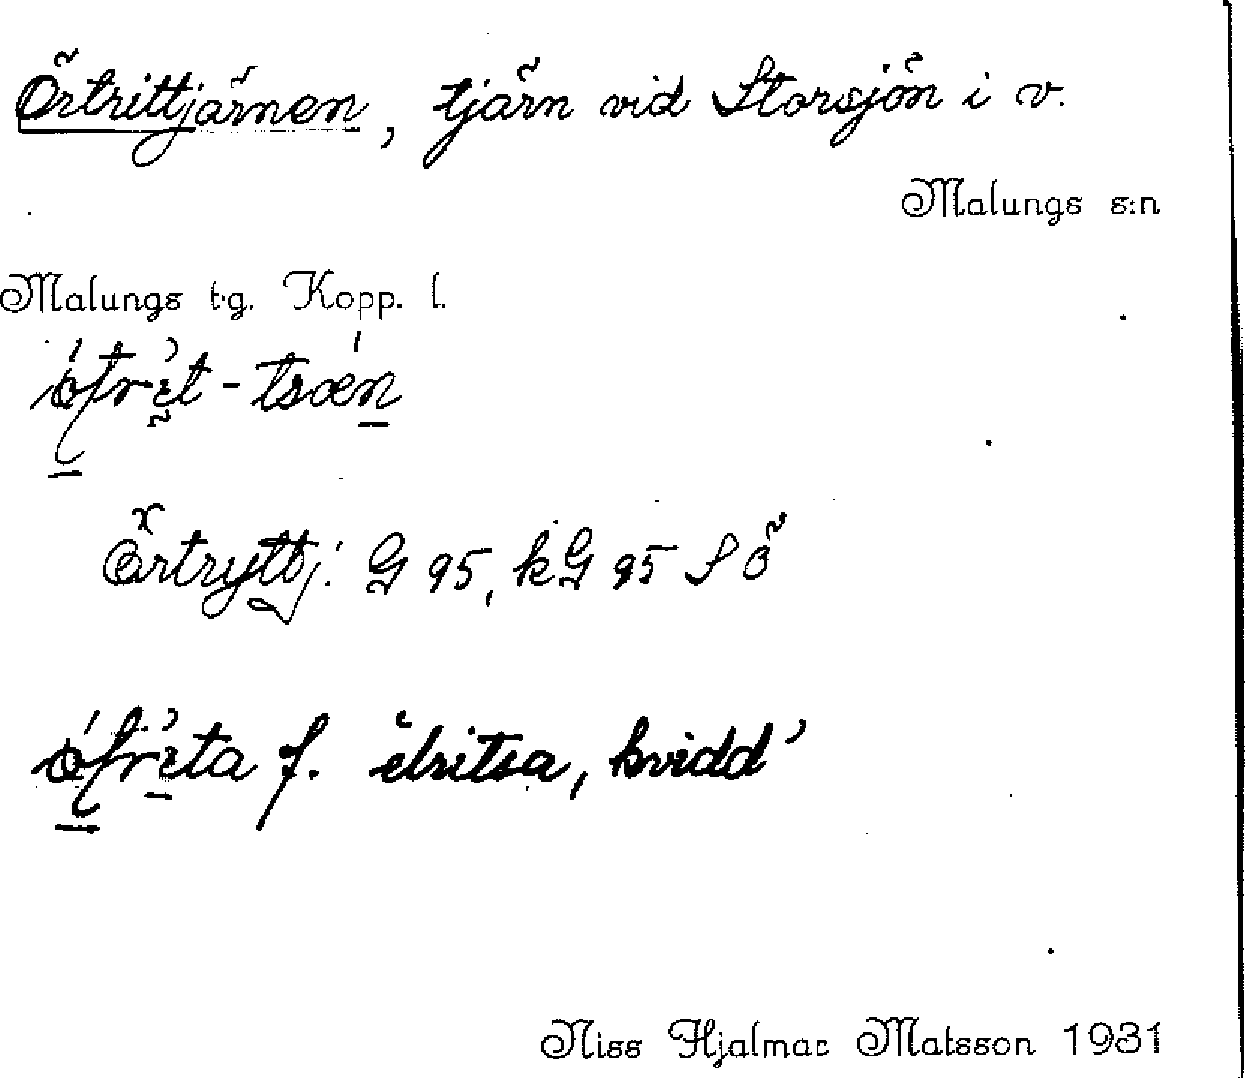 Örtrittjärnen, tjärn vid Storsjön i v.
Malungs s:n
Malungs tg. Kopp. l.
Örtryttj: G 95, kG 95 S ö
f. 'elritsa, kvidd'
Niss Hjalmar Matsson 1931